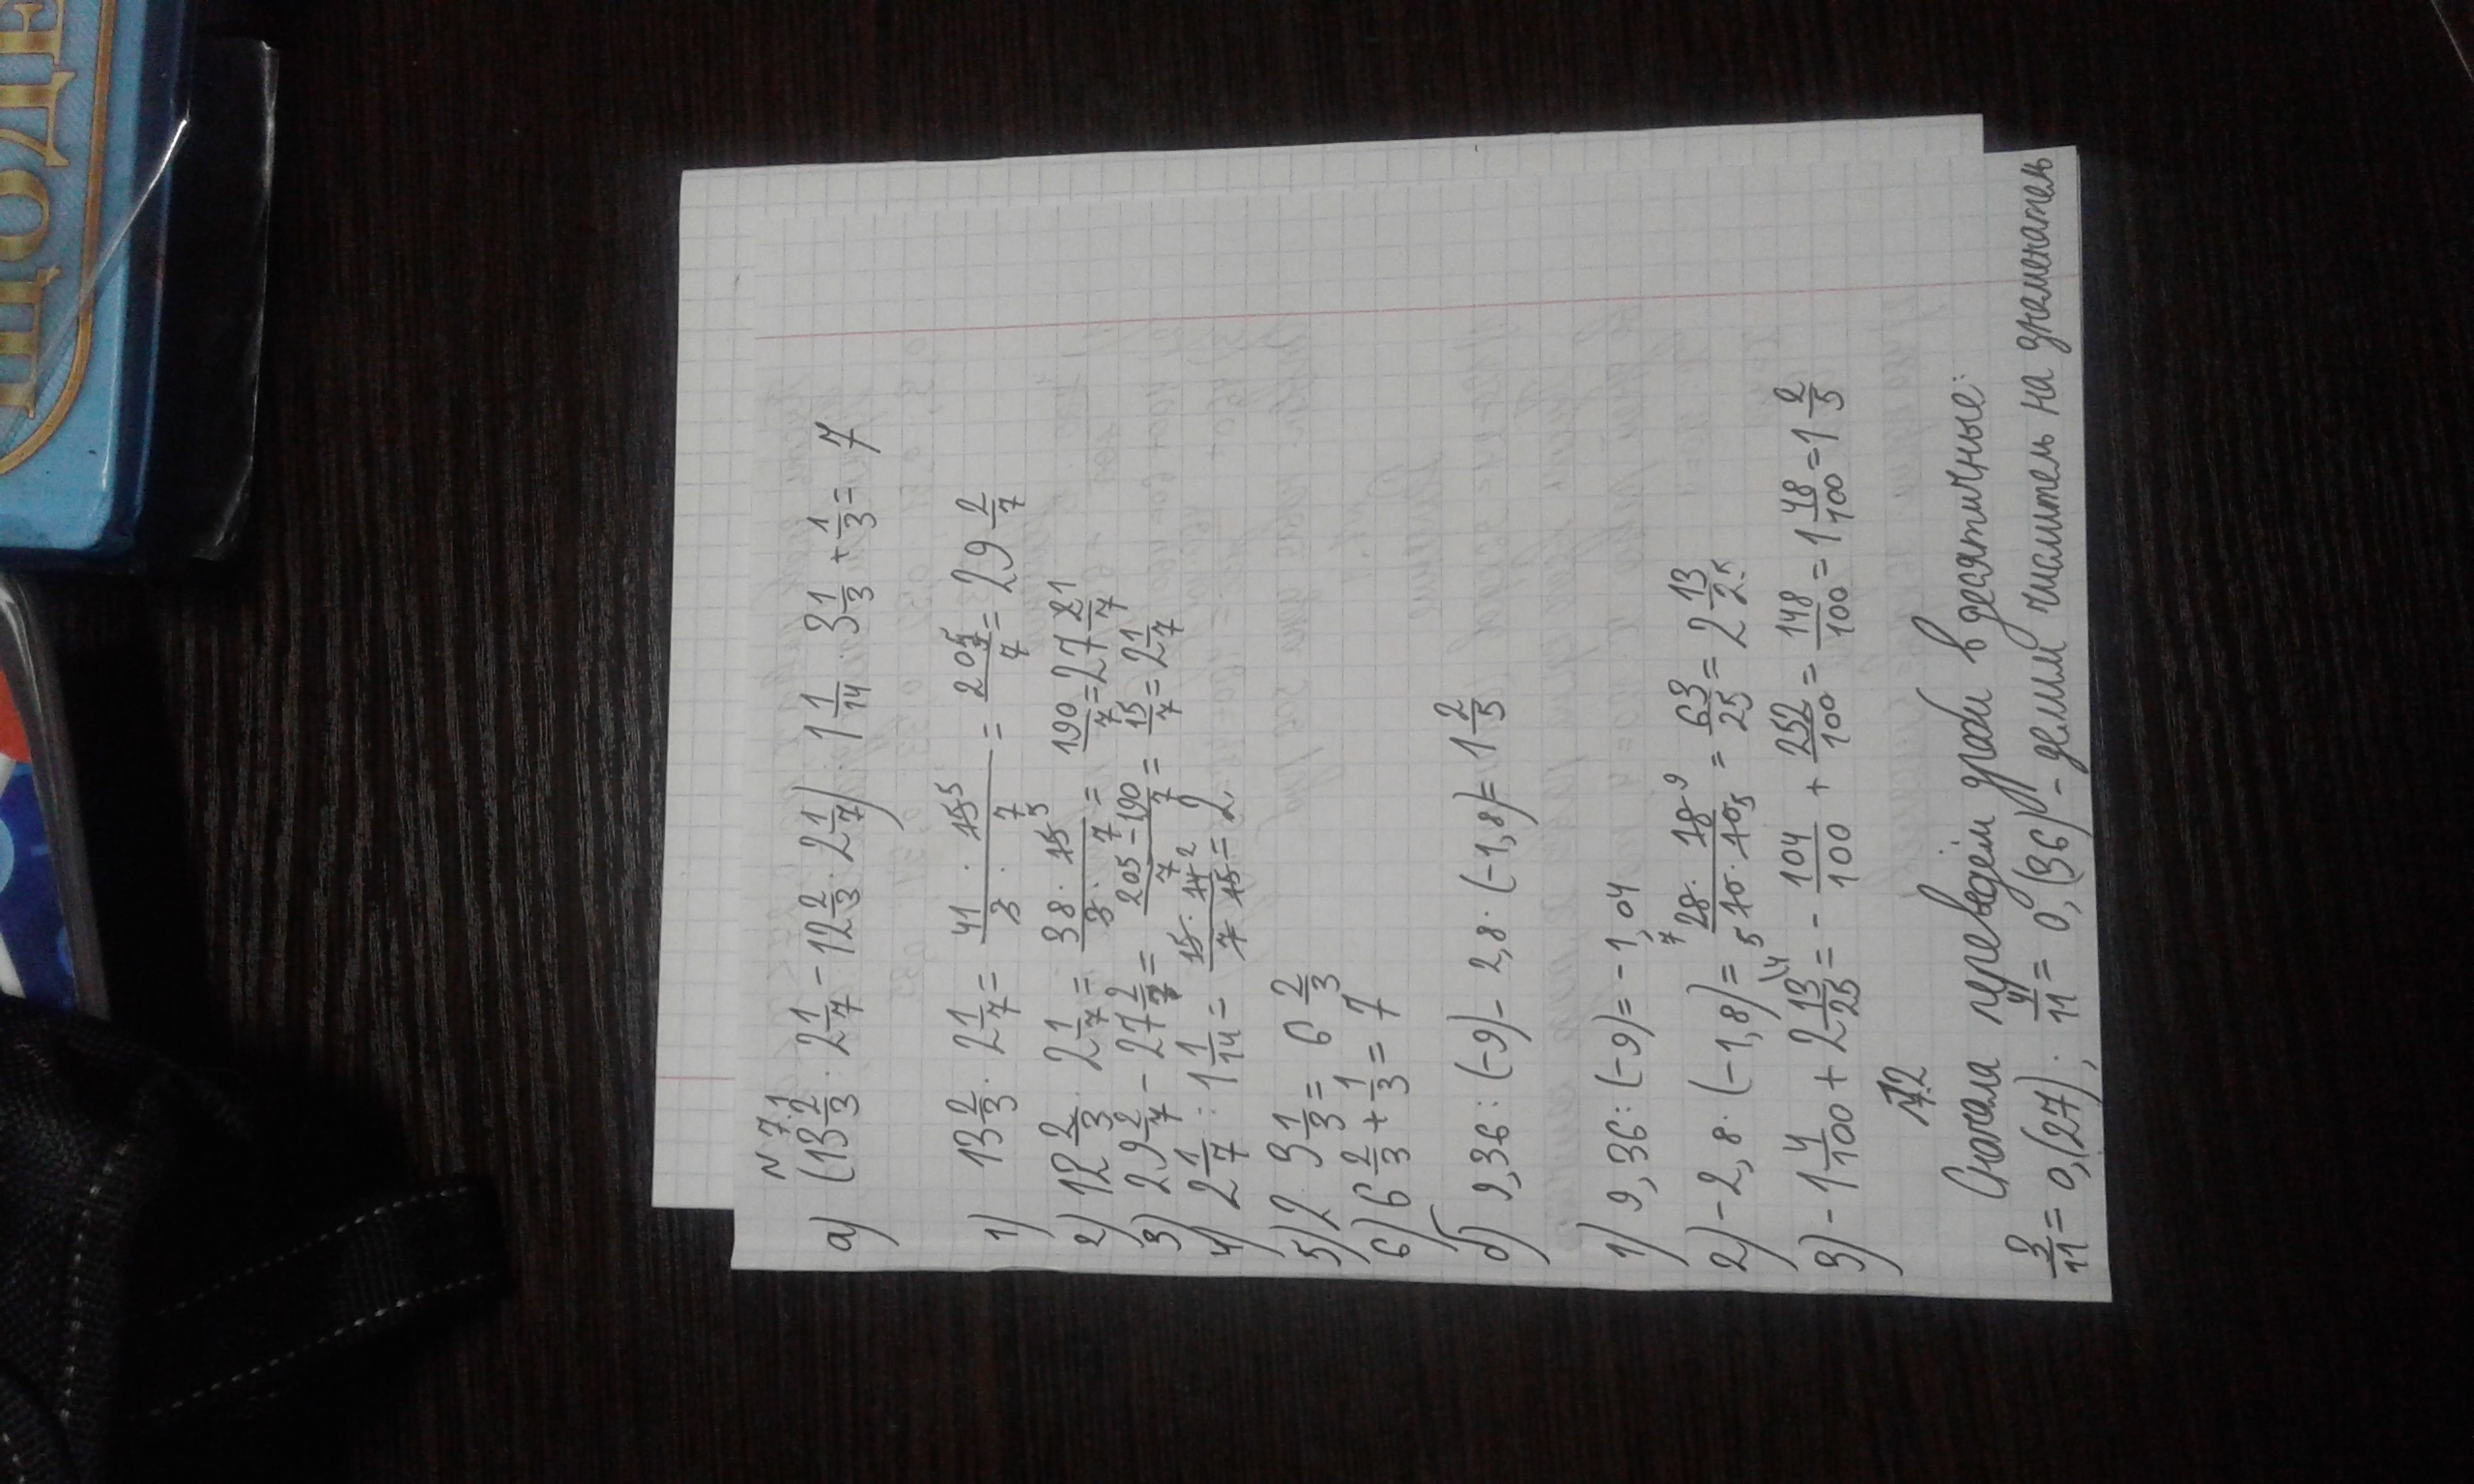 N 7.1
а) (13 2/3 · 2 1/7 - 12 2/3 · 2 1/7) : 1 1/14 · 3 1/3 + 1/3 = 7
1) 13 2/3 · 2 1/7 = 41 · 15 5 / 3 · 7 = 205/7 = 29 2/7
2) 12 2/3 · 2 1/7 = 38 · 15 5 / 3 · 7 = 190/7 = 27 1/7
3) 29 2/7 - 27 2/7 = 205 - 190 / 7 = 15/7 = 2 1/7
4) 2 1/7 : 1 1/14 = 15 · 14 2 / 7 · 15 = 2
5) 2 · 3 1/3 = 6 2/3
6) 6 2/3 + 1/3 = 7
б) 9,36 : (-9) - 2,8 · (-1,8) = 1 2/5
1) 9,36 : (-9) = -1,04
2) -2,8 · (-1,8) = 7 28 · 18 9 / 5 10 · 10 5 = 63/25 = 2 13/25
3) -1 4/100 + 2 13/25 = - 104/100 + 252/100 = 148/100 = 1 48/100 = 1 2/5
7.2
Сначала переведём дроби в десятичные:
3/11 = 0,(27); 4/11 = 0,(36) - делим числитель на знаменатель